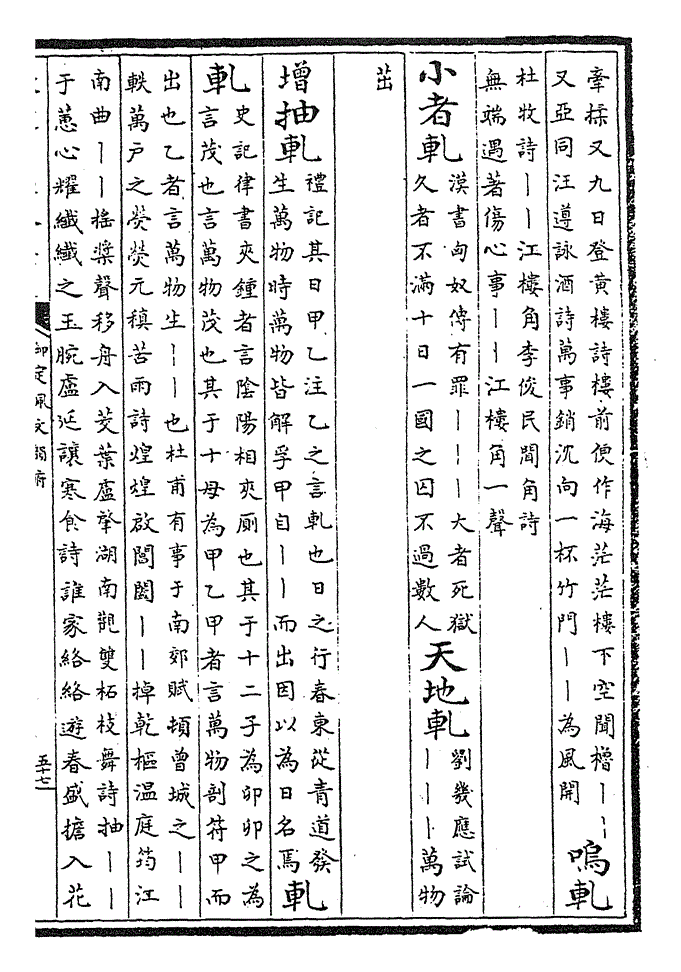 牽揉又九日登黃樓詩樓前便作海茫茫樓下空聞櫓丨丨
又亞同汪遵詠酒詩萬事銷沉向一杯竹門丨丨為風開
嗚軋
杜牧詩丨丨江樓角李俊民聞角詩
無端遇著傷心事丨丨江樓角一聲
小者軋
漢書匈奴傳有罪丨丨丨大者死獄
久者不滿十日一國之囚不過數人
天地軋
劉幾應試論
丨丨丨萬物
茁
增抽軋
禮記其日甲乙注乙之言軋也日之行春東從青道發
生萬物時萬物皆解孚甲自丨丨而出因以為日名焉
軋軋
史記律書夾鍾者言陰陽相夾廁也其于十二子為卯卯之為
言茂也言萬物茂也其于十母為甲乙甲者言萬物剖符甲而
出也乙者言萬物生丨丨也杜甫有事于南郊賦頓曾城之丨丨
軼萬戶之熒熒元稹苦雨詩煌煌啟閶闔丨丨掉乾樞溫庭筠江
南曲丨丨搖槳聲移舟入茭葉盧肇湖南觀雙柘枝舞詩抽丨丨
于蕙心耀纖纖之玉腕盧延讓寒食詩誰家絡絡遊春盛擔入花
御定佩文韻府
五十七